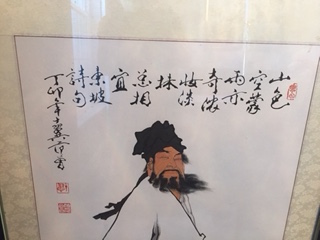 山色
空蒙
雨亦
奇濃
妝淡
抹
總相
宜
東坡
詩句
丁卯年十翼范曾